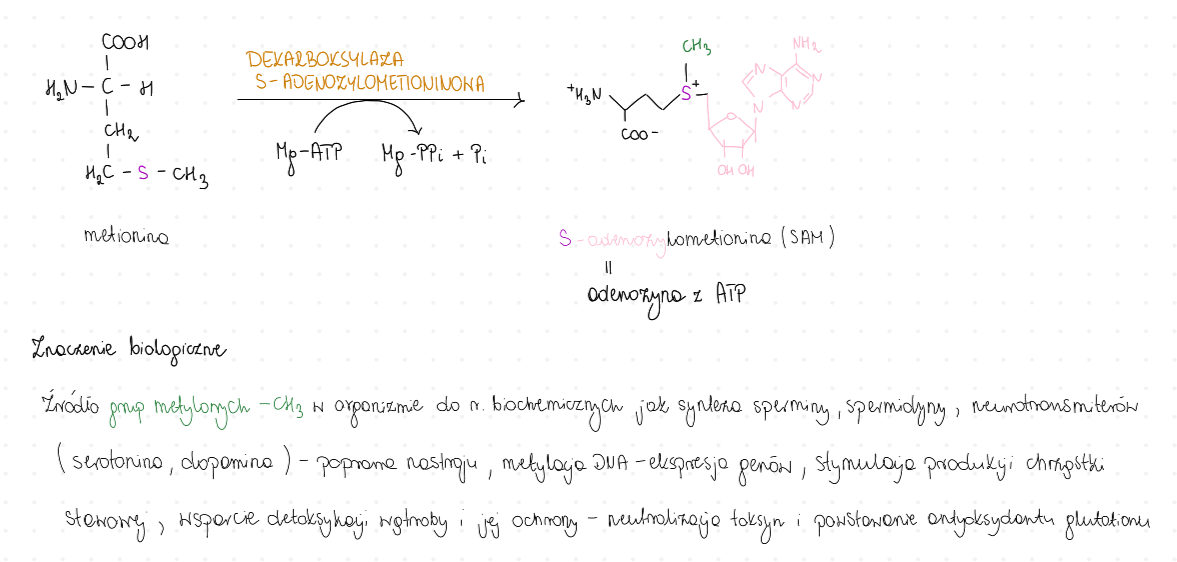 COOH
H₂N – C – H
CH₂
H₂C – S – CH₃
metionina
DEKARBOKSYLAZA
S-ADENOZYLOMETIONINOWA
Mg-ATP
Mg-PPi + Pi
CH₃
⁺H₃N
S⁺
COO⁻
NH₂
N
N
N
N
O
OH OH
S-adenozylometionina (SAM)
=
adenozyna z ATP
Znaczenie biologiczne
Źródło grup metylowych –CH₃ w organizmie do r. biochemicznych jak synteza sperminy, spermidyny, neurotransmiterów
(serotonina, dopamina) – poprawa nastroju, metylacja DNA – ekspresja genów, stymulacja produkcji chrząstki
stawowej, wsparcie detoksykacji wątroby i jej ochrony – neutralizacja toksyn i powstawanie antyoksydantu glutationu